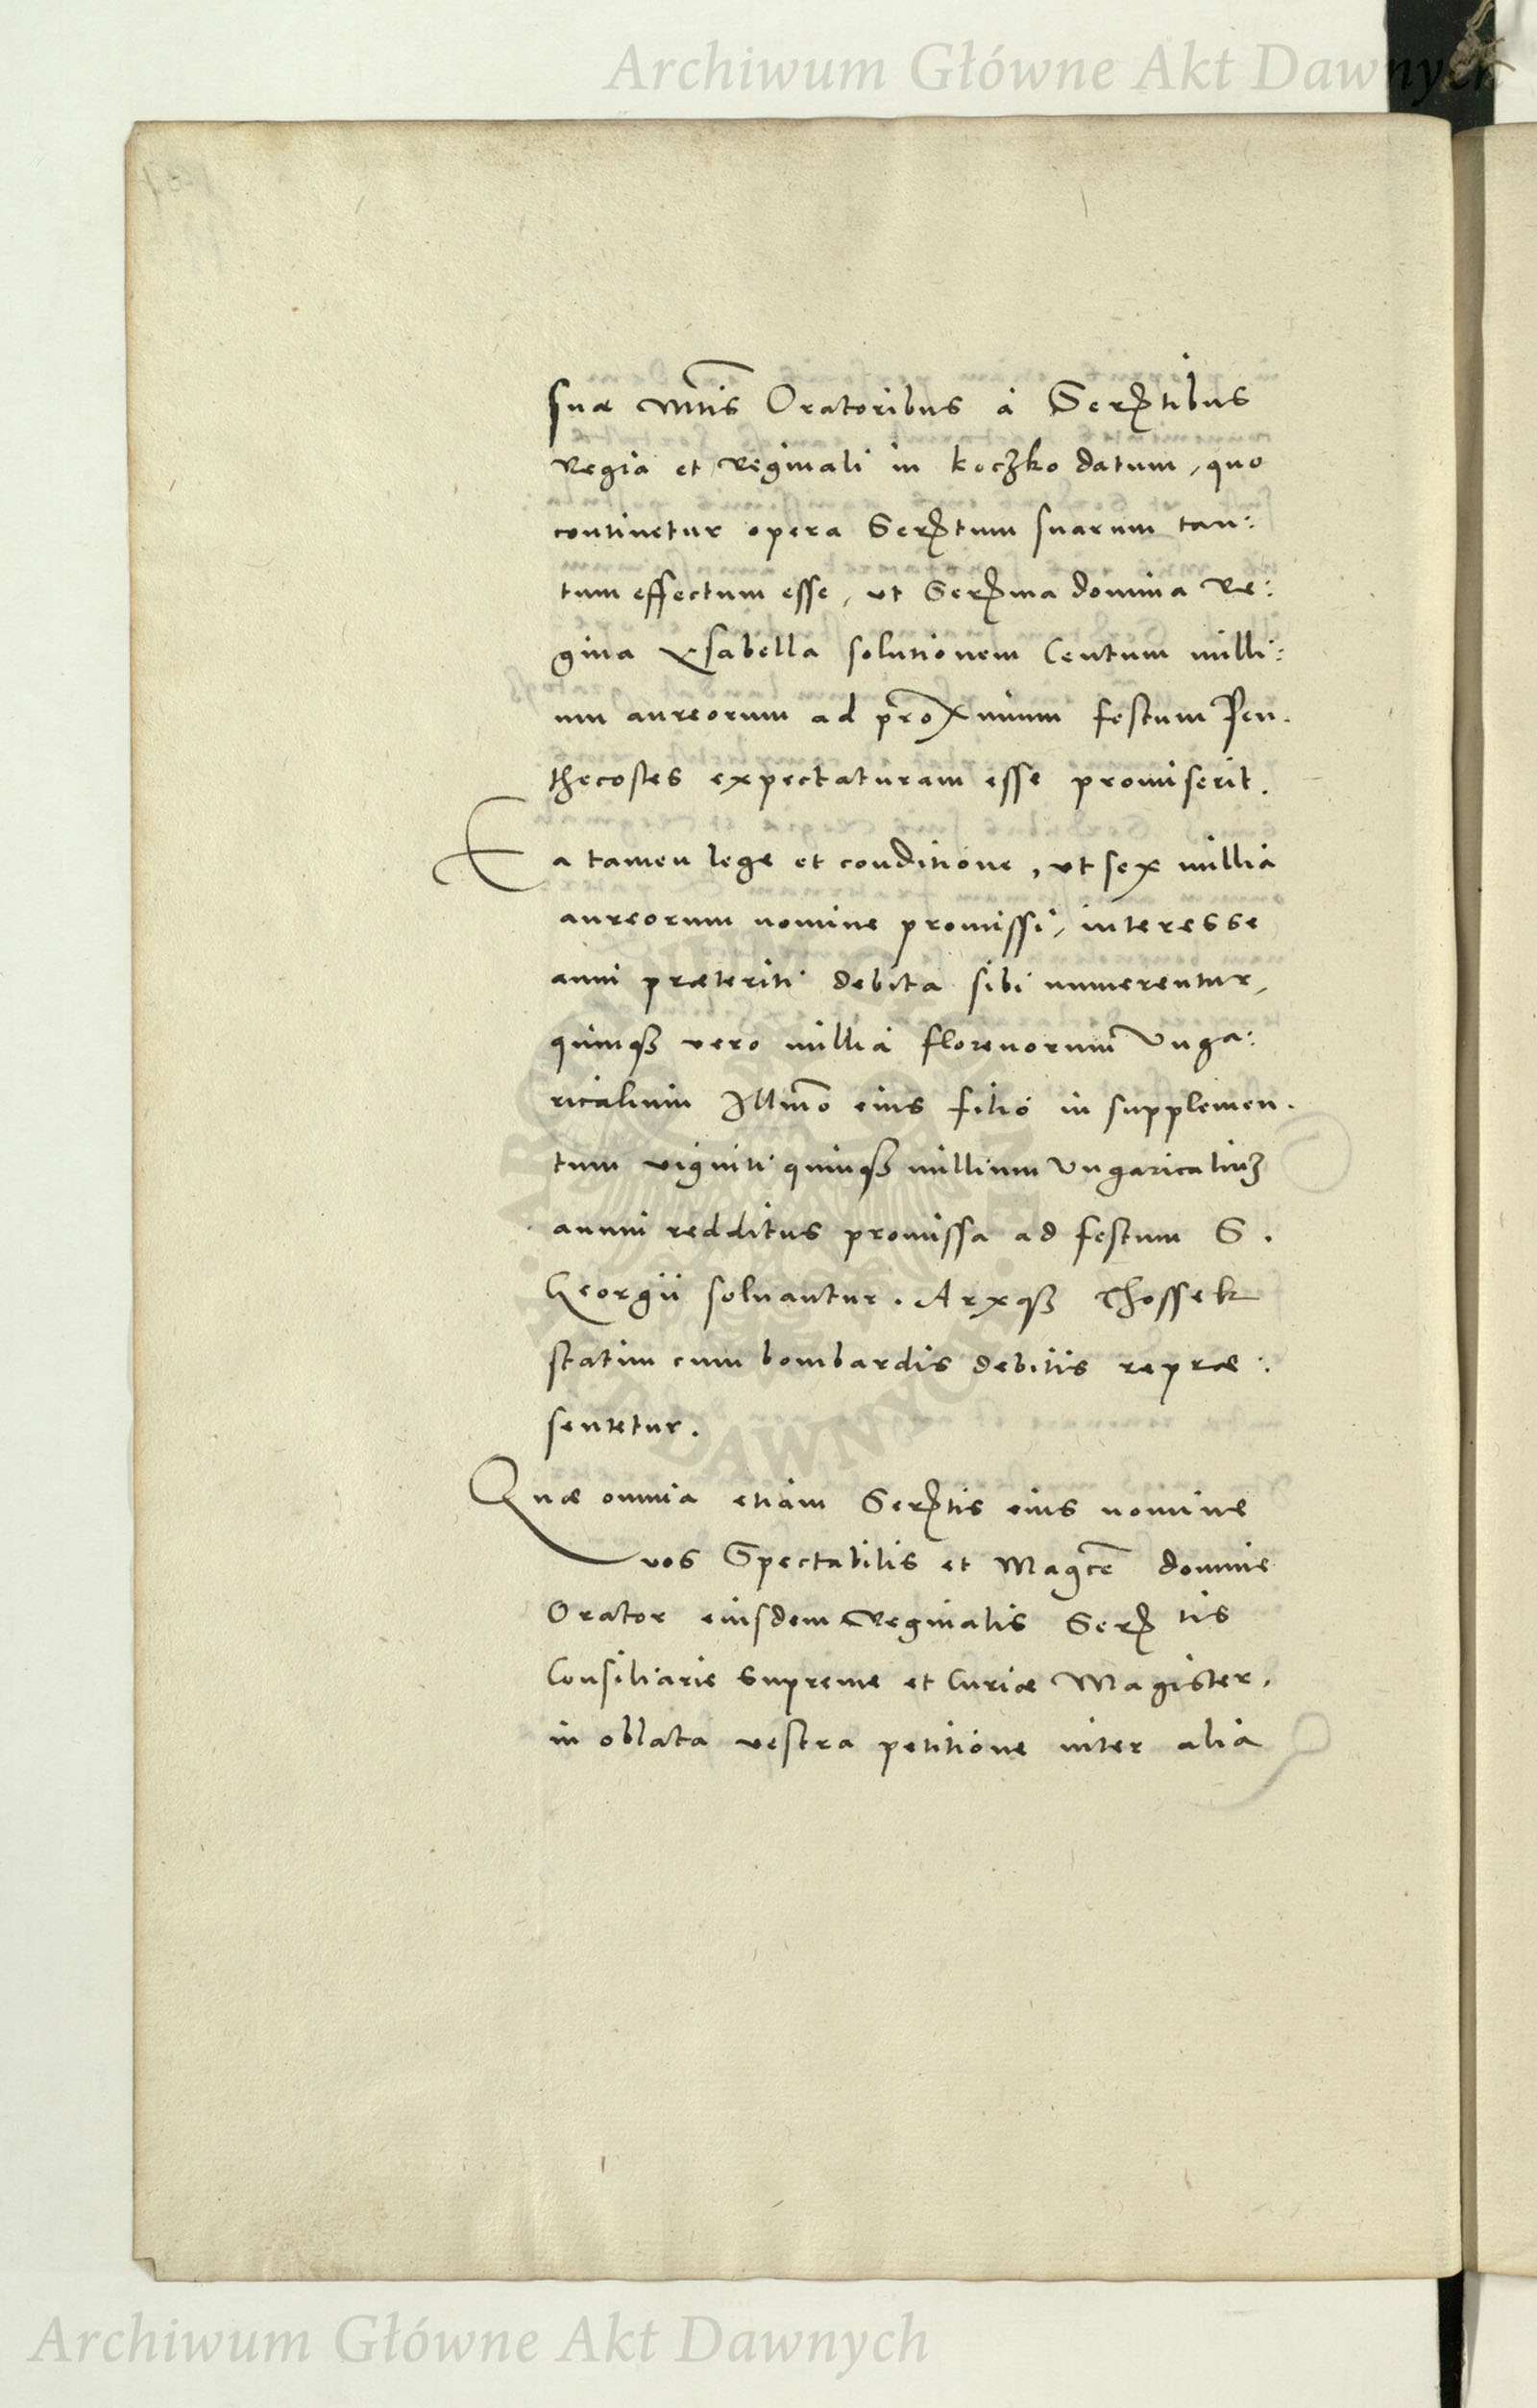 Archiwum Główne Akt Dawnych
suæ Mtis Oratoribus à Serꝑtibus
Regia et Reginali in koczko datum, quo
continetur opera Serꝑtum suarum tan:
tum effectum esse, ut Serꝑma domina Re:
gina Ysabella solutionem Centum milli:
um aureorum ad proximum festum Pen.
thecostes expectaturam esse promiserit.
Ea tamen lege et conditione, ut sex millia
aureorum nomine promissi, interesse
anni præteriti debita sibi numerentur,
quinqꝫ vero millia florenorum Unga:
ricalium Illmo eius filio in supplemen.
tum viginti quinqꝫ millium Ungaricaliuꝫ
annui redditus promissa ad festum S.
Georgii solvantur. Arxqꝫ Thossek
statim cum bombardis debitis repræ:
sentetur.
Quæ omnia etiam Serꝑtis eius nomine
vos Spectabilis et Magce domine
Orator eiusdem Reginalis Serꝑtis
Consiliarie supreme et Curiæ Magister,
in oblata vestra petitione inter alia
Archiwum Główne Akt Dawnych